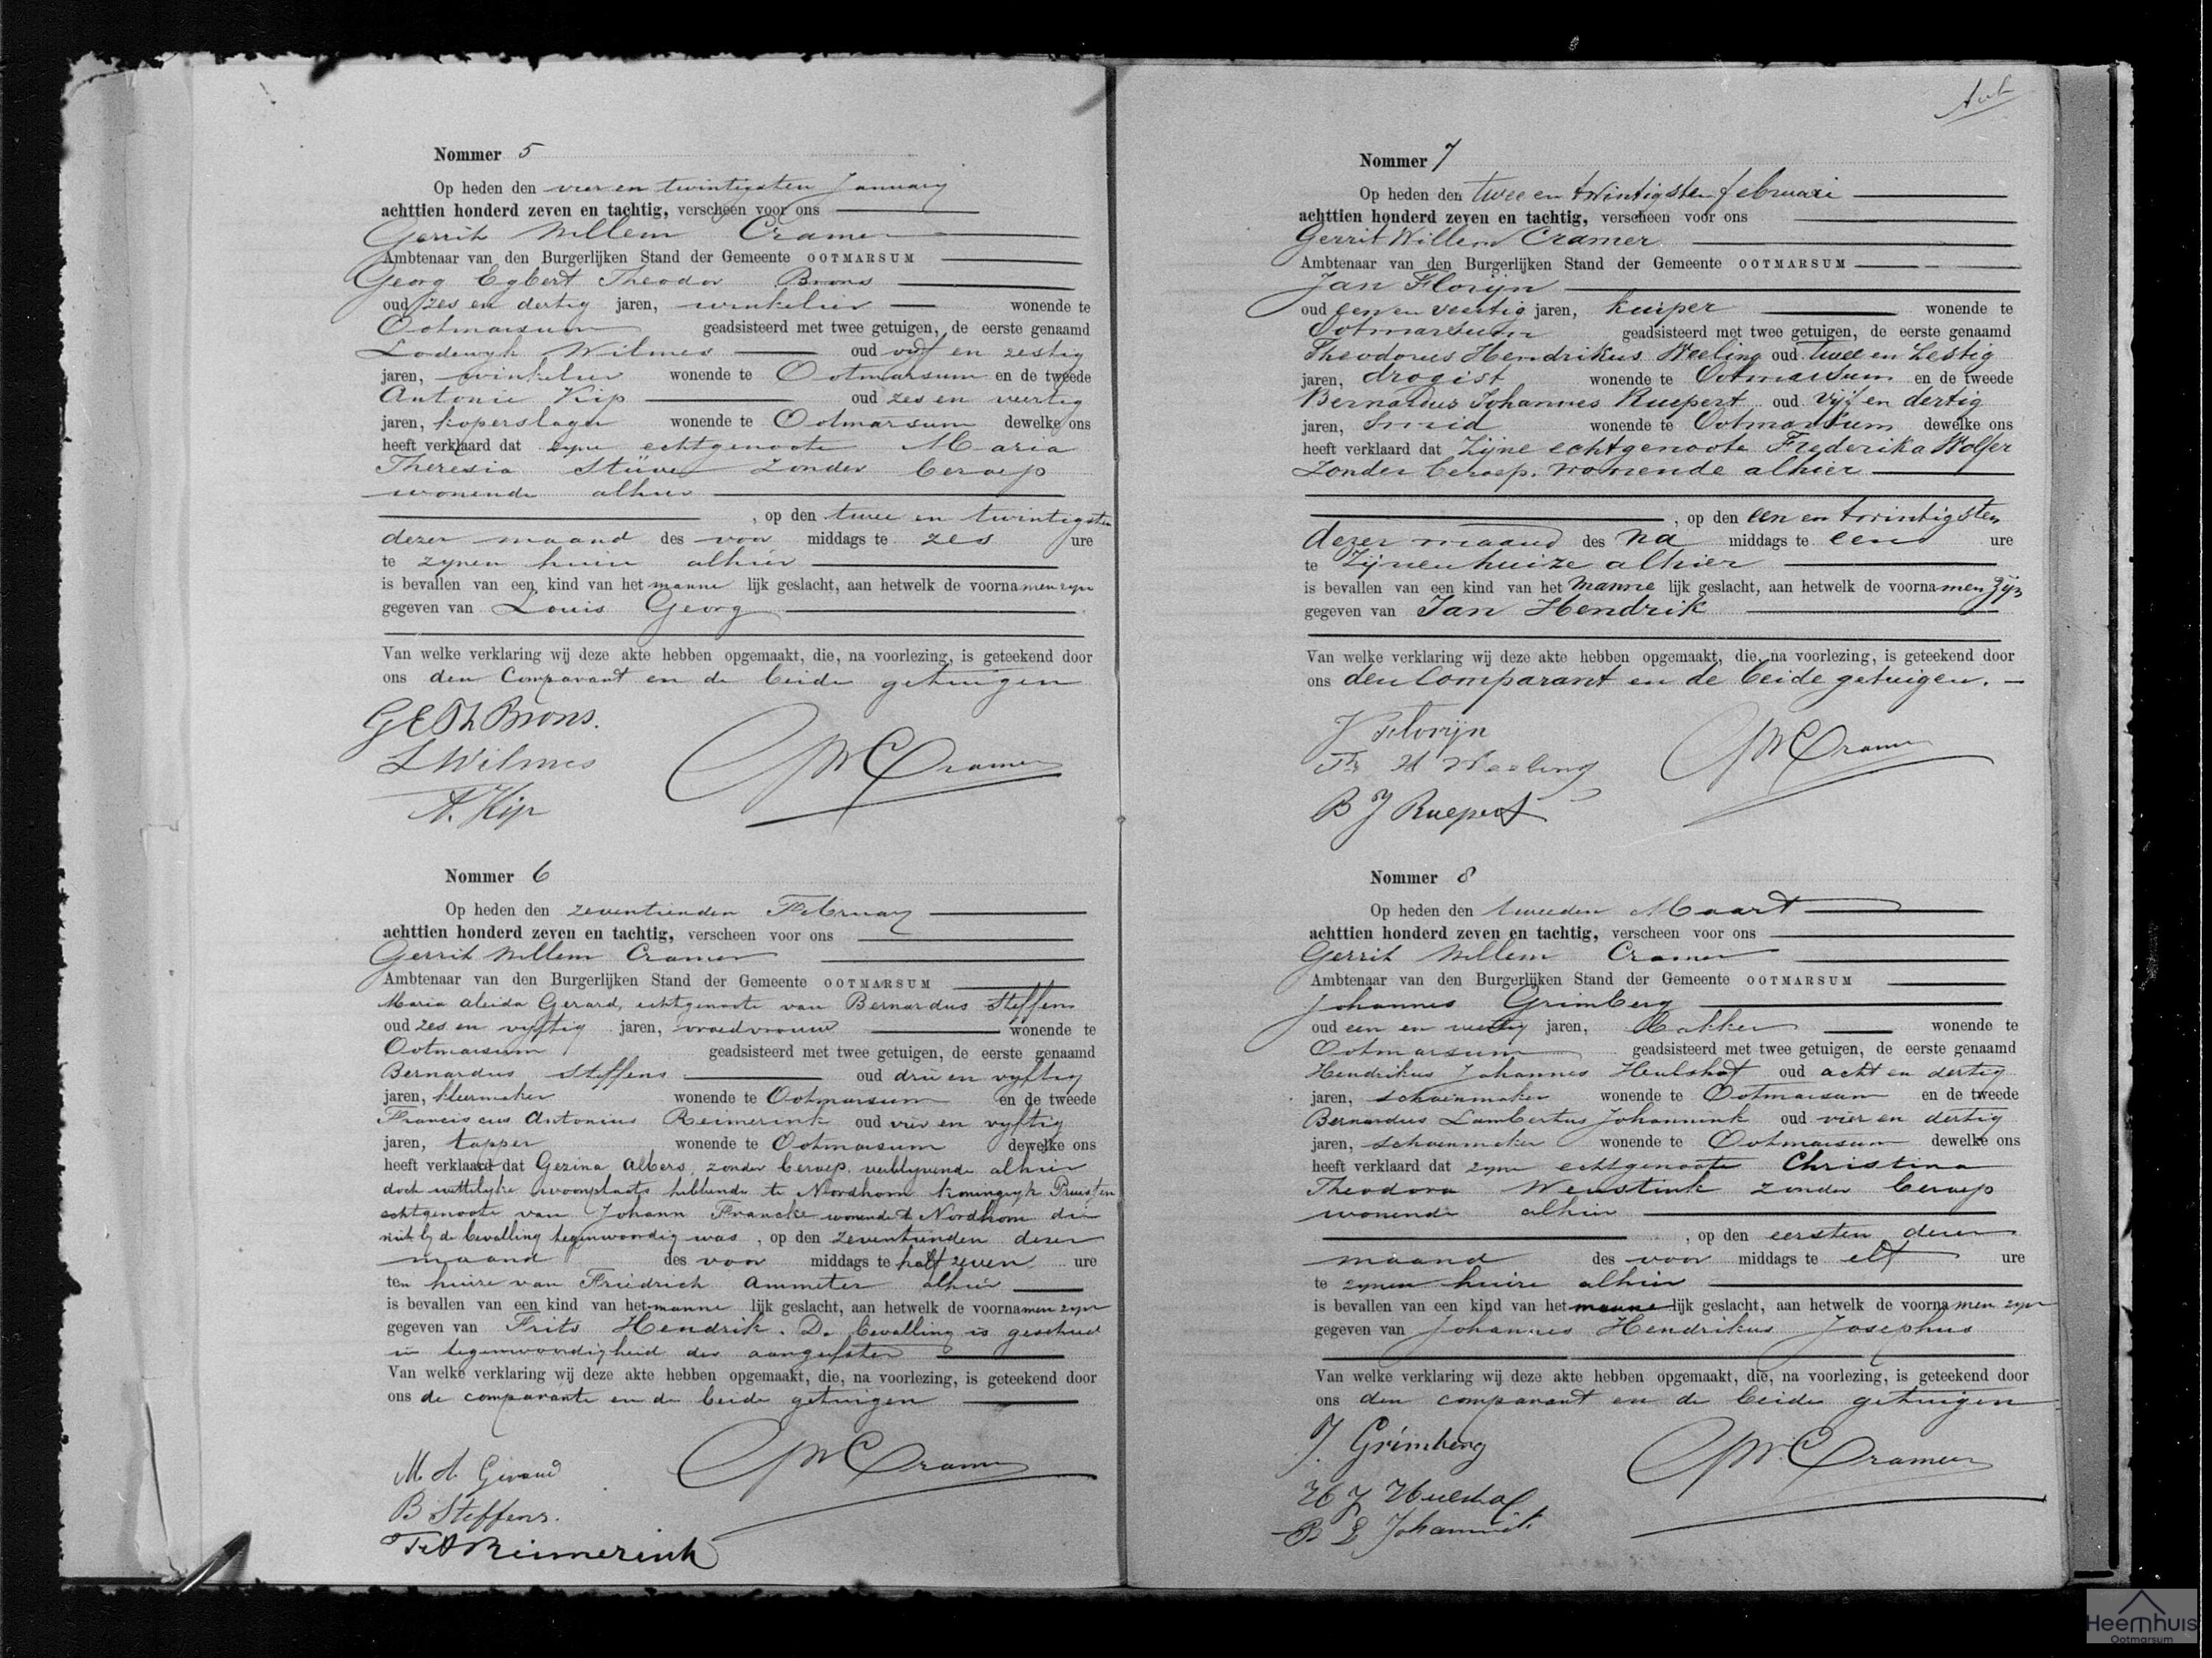 Nommer 5
Op heden den vier en twintigsten January
achttien honderd zeven en tachtig, verscheen voor ons
Gerrit Willem Cramer
Ambtenaar van den Burgerlijken Stand der Gemeente OOTMARSUM
Georg Egbert Theodor Brons
oud zes en dertig jaren, winkelier wonende te
Ootmarsum geadsisteerd met twee getuigen, de eerste genaamd
Lodewyk Wilmes oud vyf en zestig
jaren, winkelier wonende te Ootmarsum en de tweede
Antonie Kip oud zes en veertig
jaren, koperslager wonende te Ootmarsum dewelke ons
heeft verklaard dat zyne echtgenoote Maria
Theresia Stüve zonder beroep
wonende alhier
, op den twee en twintigsten
dezer maand des voor middags te zes ure
te zynen huize alhier
is bevallen van een kind van het manne lijk geslacht, aan hetwelk de voornamen zyn
gegeven van Louis Georg
Van welke verklaring wij deze akte hebben opgemaakt, die, na voorlezing, is geteekend door
ons den Comparant en de beide getuigen
G E Th Brons.
L Wilmes
GW Cramer
A. Kip
Nommer 6
Op heden den zeventienden February
achttien honderd zeven en tachtig, verscheen voor ons
Gerrit Willem Cramer
Ambtenaar van den Burgerlijken Stand der Gemeente OOTMARSUM
Maria Aleida Gerard, echtgenoote van Bernardus Steffens
oud zes en vyftig jaren, vroedvrouw wonende te
Ootmarsum geadsisteerd met twee getuigen, de eerste genaamd
Bernardus Steffens oud drie en vyftig
jaren, kleermaker wonende te Ootmarsum en de tweede
Franciscus Antonius Reimerink oud vier en vyftig
jaren, tapper wonende te Ootmarsum dewelke ons
heeft verklaard dat Gezina Albers, zonder beroep, verblyvende alhier
doch wettelyke woonplaats hebbende te Nordhorn koningryk Pruissen
echtgenoote van Johann Francke wonende te Nordhorn die
niet bij de bevalling tegenwoordig was, op den zeventienden dezer
maand des voor middags te half zeven ure
ten huize van Friedrich Ammeter alhier
is bevallen van een kind van het manne lijk geslacht, aan hetwelk de voornamen zyn
gegeven van Frits Hendrik. De bevalling is geschied
in tegenwoordigheid der aangeefster
Van welke verklaring wij deze akte hebben opgemaakt, die, na voorlezing, is geteekend door
ons de comparante en de beide getuigen
M A Gerard
GW Cramer
B Steffens.
F A Reimerink
Nommer 7
Op heden den twee en twintigsten februari
achttien honderd zeven en tachtig, verscheen voor ons
Gerrit Willem Cramer
Ambtenaar van den Burgerlijken Stand der Gemeente OOTMARSUM
Jan Florijn
oud een en veertig jaren, kuiper wonende te
Ootmarsum geadsisteerd met twee getuigen, de eerste genaamd
Theodorus Hendrikus Weeling oud twee en zestig
jaren, drogist wonende te Ootmarsum en de tweede
Bernardus Johannes Ruepert oud vijf en dertig
jaren, smid wonende te Ootmarsum dewelke ons
heeft verklaard dat zijne echtgenoote Frederika Wolfer
zonder beroep, wonende alhier
, op den een en twintigsten
dezer maand des na middags te een ure
te zijnen huize alhier
is bevallen van een kind van het manne lijk geslacht, aan hetwelk de voornamen zijn
gegeven van Jan Hendrik
Van welke verklaring wij deze akte hebben opgemaakt, die, na voorlezing, is geteekend door
ons den Comparant en de beide getuigen.
J Florijn
GW Cramer
Th H Weeling
B J Ruepert
Nommer 8
Op heden den tweeden Maart
achttien honderd zeven en tachtig, verscheen voor ons
Gerrit Willem Cramer
Ambtenaar van den Burgerlijken Stand der Gemeente OOTMARSUM
Johannes Grimberg
oud een en veertig jaren, Bakker wonende te
Ootmarsum geadsisteerd met twee getuigen, de eerste genaamd
Hendrikus Johannes Hulshof oud acht en dertig
jaren, schoenmaker wonende te Ootmarsum en de tweede
Bernardus Lambertus Johannink oud vier en dertig
jaren, schoenmaker wonende te Ootmarsum dewelke ons
heeft verklaard dat zyne echtgenoote Christina
Theodora Wenstink zonder beroep
wonende alhier
, op den eersten dezer
maand des voor middags te elf ure
te zynen huize alhier
is bevallen van een kind van het manne lijk geslacht, aan hetwelk de voornamen zyn
gegeven van Johannes Hendrikus Josephus
Van welke verklaring wij deze akte hebben opgemaakt, die, na voorlezing, is geteekend door
ons den comparant en de beide getuigen
J. Grimberg
GW Cramer
H J Hulshof
B L Johannink
Heemhuis
Ootmarsum